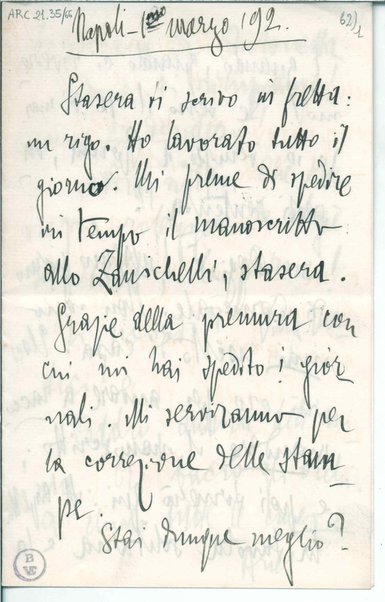 ARC 21. 35/66
62)1
Napoli - 1mo marzo 192.
Stasera ti scrivo in fretta:
un rigo. Ho lavorato tutto il
giorno. Mi preme di spedire
in tempo il manoscritto
allo Zanichelli, stasera.
Grazie della premura con
cui mi hai spedito i gior
nali. Mi serviranno per
la correzione delle stam
pe.
Stai dunque meglio?
B
VE